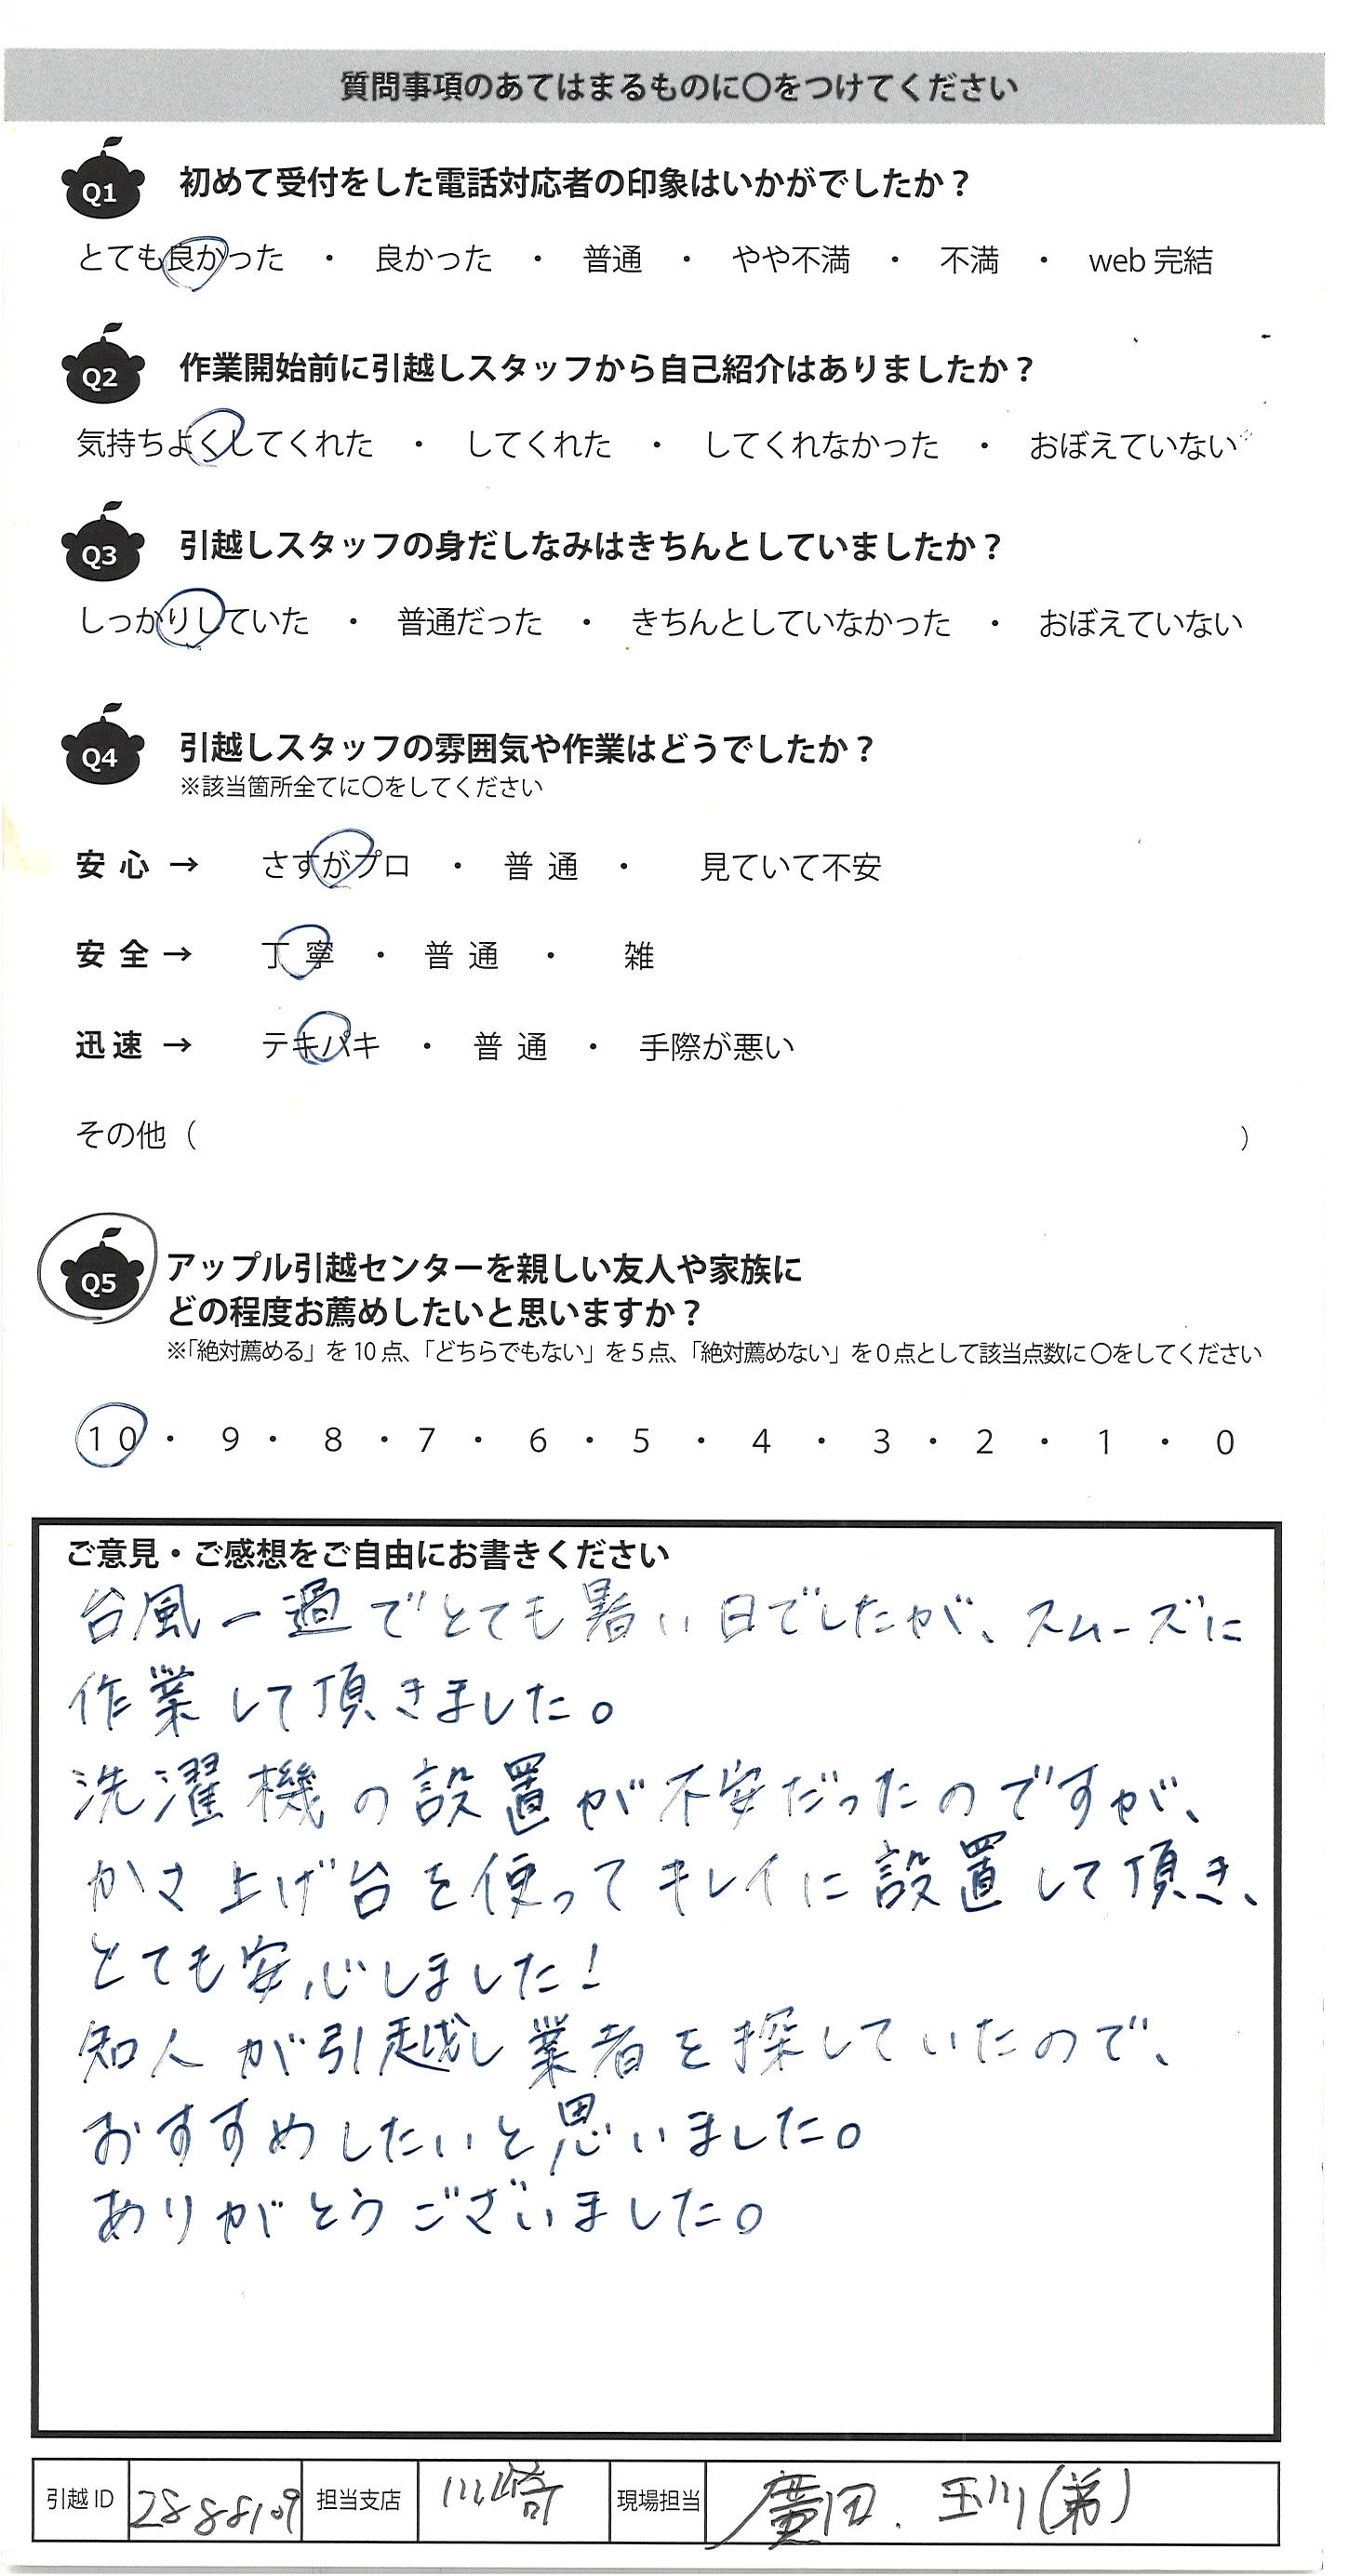 質問事項のあてはまるものに〇をつけてください
Q1 初めて受付をした電話対応者の印象はいかがでしたか？
とても良かった ・ 良かった ・ 普通 ・ やや不満 ・ 不満 ・ web 完結
Q2 作業開始前に引越しスタッフから自己紹介はありましたか？
気持ちよくしてくれた ・ してくれた ・ してくれなかった ・ おぼえていない
Q3 引越しスタッフの身だしなみはきちんとしていましたか？
しっかりしていた ・ 普通だった ・ きちんとしていなかった ・ おぼえていない
Q4 引越しスタッフの雰囲気や作業はどうでしたか？
※該当箇所全てに〇をしてください
安心 → さすがプロ ・ 普通 ・ 見ていて不安
安全 → 丁寧 ・ 普通 ・ 雑
迅速 → テキパキ ・ 普通 ・ 手際が悪い
その他（ ）
Q5 アップル引越センターを親しい友人や家族に
どの程度お薦めしたいと思いますか？
※「絶対薦める」を10点、「どちらでもない」を5点、「絶対薦めない」を0点として該当点数に〇をしてください
10 ・ 9 ・ 8 ・ 7 ・ 6 ・ 5 ・ 4 ・ 3 ・ 2 ・ 1 ・ 0
ご意見・ご感想をご自由にお書きください
台風一過でとても暑い日でしたが、スムーズに
作業して頂きました。
洗濯機の設置が不安だったのですが、
かさ上げ台を使ってキレイに設置して頂き、
とても安心しました！
知人が引越し業者を探していたので、
おすすめしたいと思いました。
ありがとうございました。
引越ID 担当支店 川崎 現場担当 廣田. 玉川(弟)